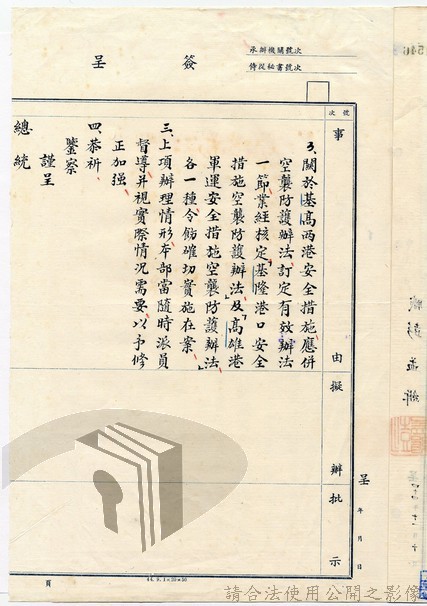 簽呈
承辦機關號次
侍從秘書號次
號次
事
由
擬
辦
批
示
3.關於基高兩港安全措施應併
空襲防護辦法訂定有效辦法
一節業經核定「基隆港口安全
措施空襲防護辦法」及「高雄港
軍運安全措施空襲防護辦法」
各一種令飭確切實施在案
三、上項辦理情形本部當隨時派員
督導并視實際情况需要以予修
正加强
四、恭祈
鑒察
謹呈
總統
呈
年 月 日
頁
請合法使用公開之影像